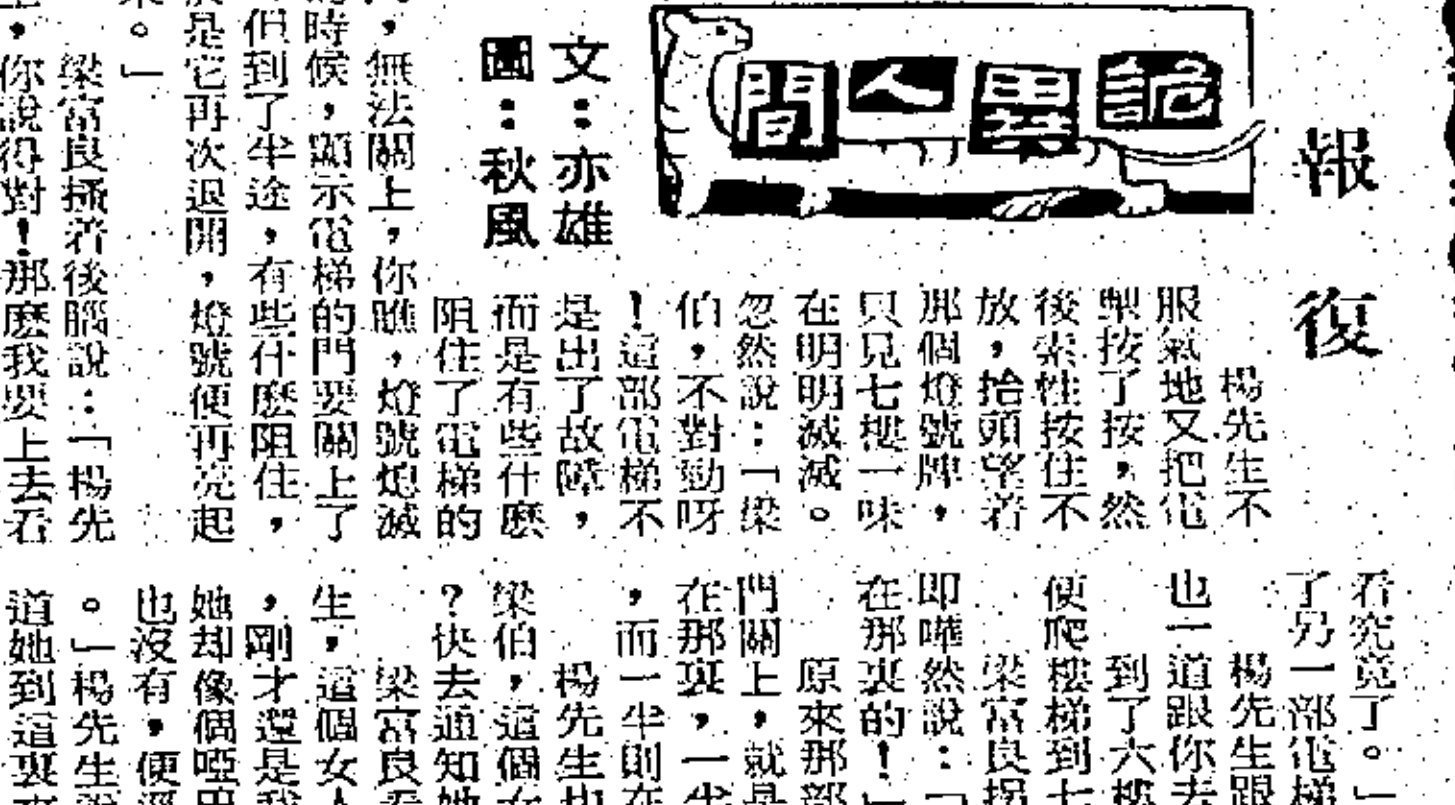 報復
詭異人間
文：亦雄
圖：秋風
楊先生不
服氣地又把電
掣按了按，然
後索性按住不
放，抬頭望着
那個燈號牌，
只見七樓一味
在明明滅滅。
忽然說：「梁
伯，不對勁呀
！這部電梯不
是出了故障，
而是有些什麽
阻住了電梯的
，無法關上，你瞧，燈號熄滅
時候，顯示電梯的門要關上了
但到了半途，有些什麽阻住，
是它再次退開，燈號便再亮起
。」
梁富良搔着後腦說：「楊先
，你說得對！那麽我要上去看
看究竟了。」
了另一部電梯
楊先生跟
也一道跟你去
到了六樓
便爬樓梯到七
梁富良拐
即嘩然說：「
在那裏的！」
原來那部
門關上，就是
在那裏，一半
，而一半則在
楊先生也
梁伯，這個女
？快去通知她
梁富良看
生，這個女人
，剛才還是我
她却像個啞巴
也沒有，便逕
。」楊先生說
道她到這裏來